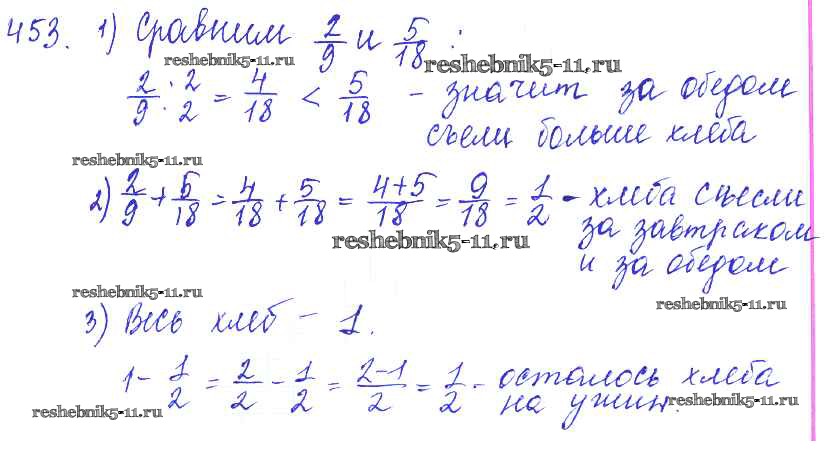 453. 1) Сравним 2/9 и 5/18 :
reshebnik5-11.ru reshebnik5-11.ru
2/9 · 2/2 = 4/18 < 5/18 - значит за обедом
съели больше хлеба
reshebnik5-11.ru
2) 2/9 + 5/18 = 4/18 + 5/18 = 4+5/18 = 9/18 = 1/2 - хлеба съели
за завтраком
reshebnik5-11.ru
и за обедом
reshebnik5-11.ru
reshebnik5-11.ru
3) Весь хлеб - 1.
1 - 1/2 = 2/2 - 1/2 = 2-1/2 = 1/2 - осталось хлеба
на ужин.
reshebnik5-11.ru reshebnik5-11.ru